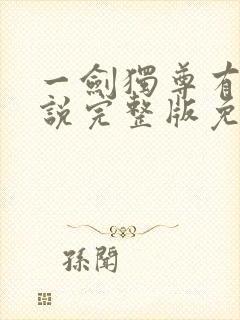 一劍獨尊有
說完整版免
孫聞